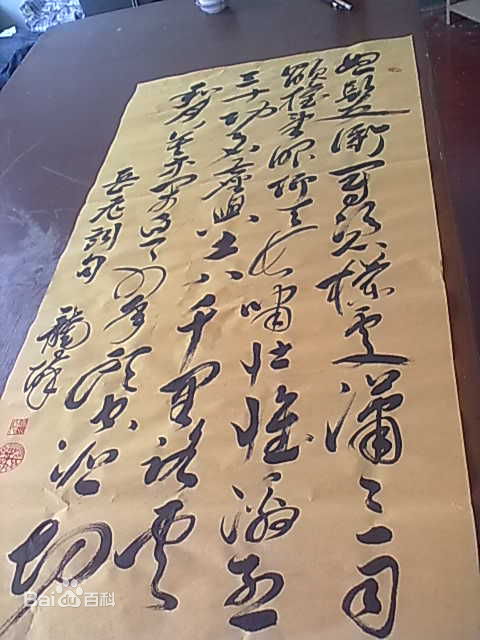 怒髮衝冠憑欄處瀟瀟雨
歇擡望眼仰天長嘯壯懷激烈
三十功名塵與土八千里路雲
和月莫等閒白了少年頭空悲切
岳飛詞句
龍
Baidu百科